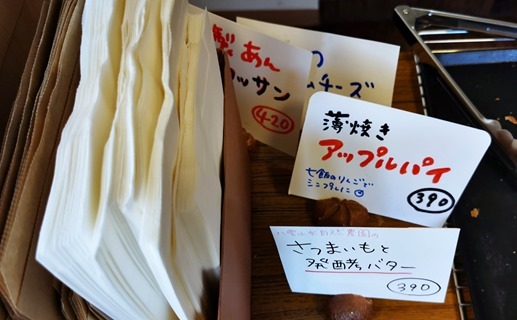 製あん
ッサン
420
の
チーズ
薄焼き
アップルパイ
七飯のりんごで
390
さつまいもと
発酵バター
390